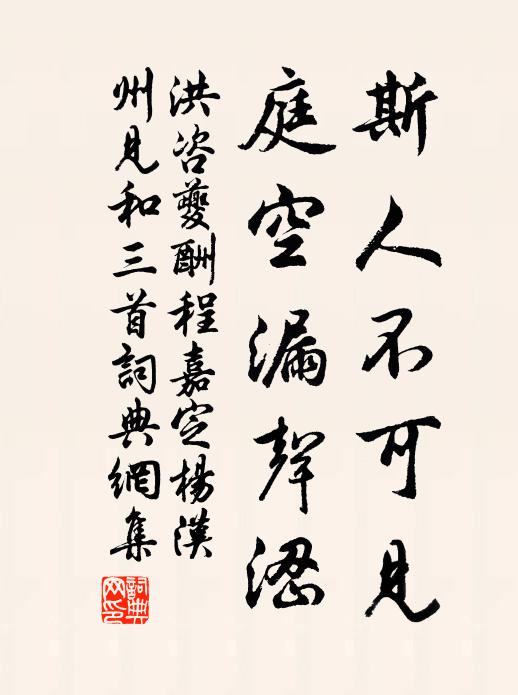 斯人不可見
庭空漏聲澀
洪咨夔酬程嘉定楊漢
州見和三首詞典網集
詞典網印